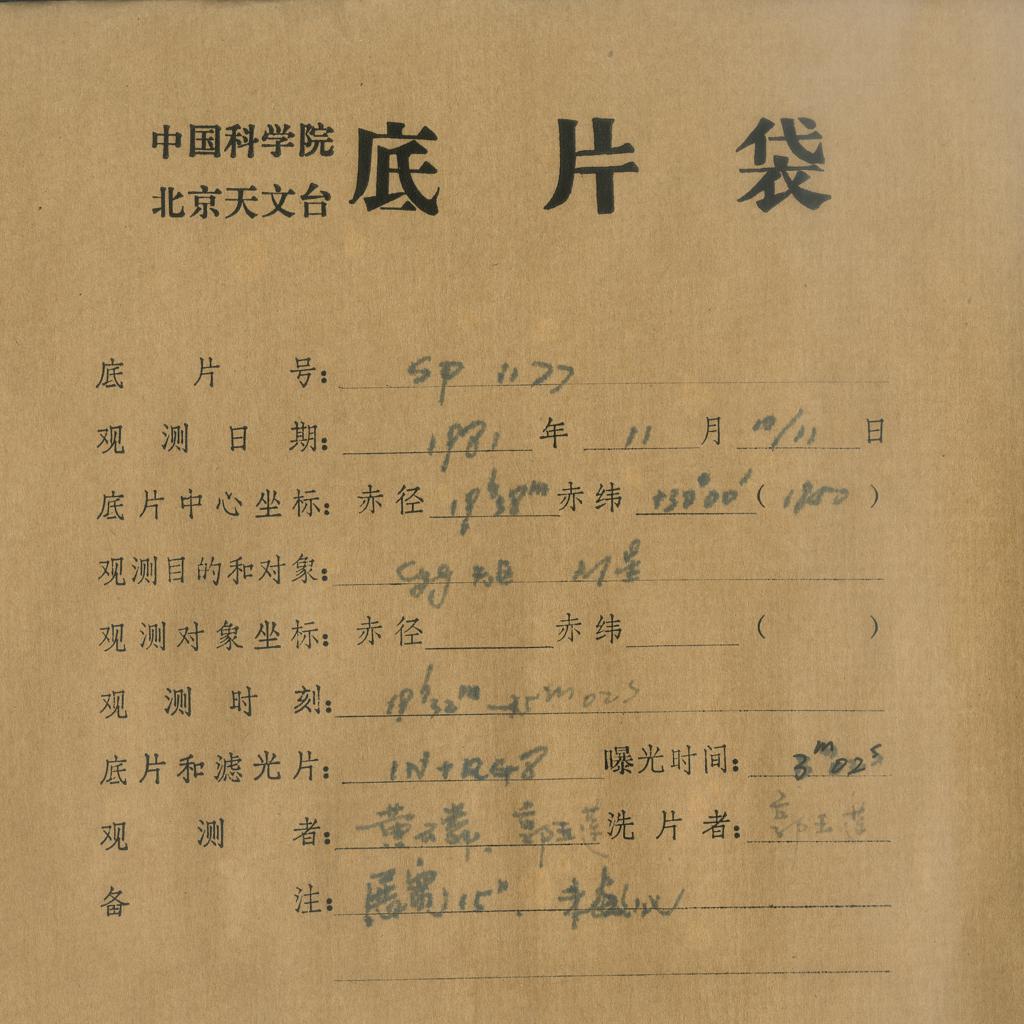 中国科学院
北京天文台
底片袋
底片号: SP 1177
观测日期: 1981 年 11 月 10/11 日
底片中心坐标: 赤径 19ʰ38ᵐ 赤纬 +30°00′ ( 1950 )
观测目的和对象: Cyg M星
观测对象坐标: 赤径 赤纬 ( )
观测时刻: 19ʰ32ᵐ—35ᵐ02ˢ
底片和滤光片: IN+RG8 曝光时间: 3ᵐ02ˢ
观测者: 黄 郭玉莲 洗片者: 郭玉莲
备注: 展宽 15″.